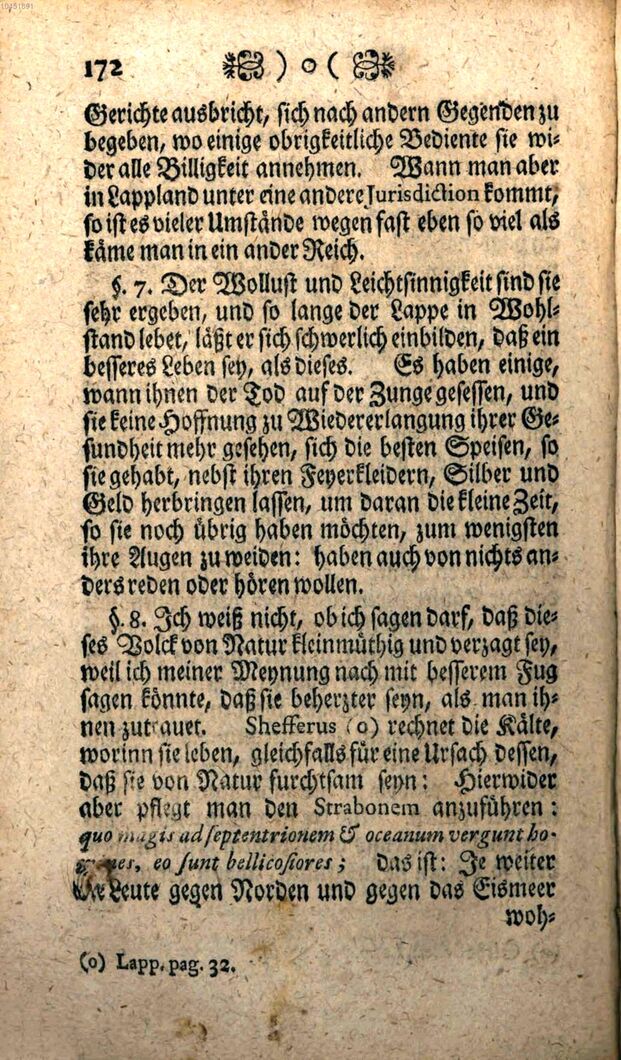 10451891
172 ) o (
Gerichte ausbricht, sich nach andern Gegenden zu
begeben, wo einige obrigkeitliche Bediente sie wi-
der alle Billigkeit annehmen. Wann man aber
in Lappland unter eine andere Jurisdiction kommt,
so ist es vieler Umstände wegen fast eben so viel als
käme man in ein ander Reich.
§. 7. Der Wollust und Leichtsinnigkeit sind sie
sehr ergeben, und so lange der Lappe in Wohl-
stand lebet, läßt er sich schwerlich einbilden, daß ein
besseres Leben sey, als dieses. Es haben einige,
wann ihnen der Tod auf der Zunge gesessen, und
sie keine Hoffnung zu Wiedererlangung ihrer Ge-
sundheit mehr gesehen, sich die besten Speisen, so
sie gehabt, nebst ihren Feyerkleidern, Silber und
Geld herbringen lassen, um daran die kleine Zeit,
so sie noch übrig haben möchten, zum wenigsten
ihre Augen zu weiden: haben auch von nichts an-
ders reden oder hören wollen.
§. 8. Ich weiß nicht, ob ich sagen darf, daß die-
ses Volck von Natur kleinmüthig und verzagt sey,
weil ich meiner Meynung nach mit besserem Fug
sagen könnte, daß sie beherzter seyn, als man ih-
nen zutrauet. Shefferus (o) rechnet die Kälte,
worinn sie leben, gleichfalls für eine Ursach dessen,
daß sie von Natur furchtsam seyn: Hierwider
aber pflegt man den Strabonem anzuführen:
quo magis ad septentrionem & oceanum vergunt ho-
mines, eo sunt bellicosiores; das ist: Je weiter
die Leute gegen Norden und gegen das Eismeer
woh-
(o) Lapp. pag. 32.